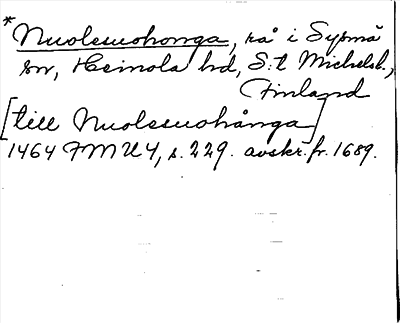 * Nuolesuohonga, rå i Sysmä
sn, Heinola hd, S:t Michelsl.,
Finland
[till Nuolesuohånga]
1464 FMU4, s. 229. avskr. fr. 1689.